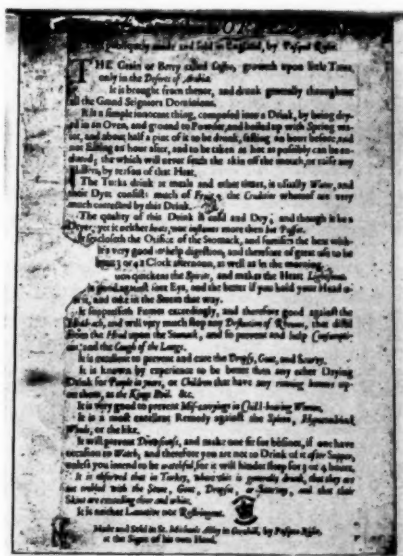 publiquely made and sold in England, by Pasqua Rosee.
THE Grain or Berry called Coffee, groweth upon little Trees,
only in the Deserts of Arabia.
It is brought from thence, and drunk generally throughout
all the Grand Seigniors Dominions.
It is a simple innocent thing, composed into a Drink, by being dry-
ed in an Oven, and ground to Powder, and boiled up with Spring wa-
ter, and about half a pint of it to be drunk, fasting an hour before, and
not Eating an hour after, and to be taken as hot as possibly can be en-
dured; the which will never fetch the skin off the mouth, or raise any
Blisters, by reason of that Heat.
The Turks drink at meals and other times, is usually Water, and
their Dyet consists much of Fruit, the Crudities whereof are very
much corrected by this Drink.
The quality of this Drink is cold and Dry; and though it be a
Dryer, yet it neither heats, nor inflames more then hot Posset.
It so closeth the Orifice of the Stomack, and fortifies the heat with-
it's very good to help digestion, and therefore of great use to be
bout 3 or 4 a Clock afternoon, as well as in the morning.
uen quickens the Spirits, and makes the Heart Lightsome.
is good against sore Eys, and the better if you hold your Head o-
er it, and take in the Steem that way.
It suppresseth Fumes exceedingly, and therefore good against the
Head-ach, and will very much stop any Defluxion of Rheums, that distil
from the Head upon the Stomack, and so prevent and help Consumpti-
ons; and the Cough of the Lungs.
It is excellent to prevent and cure the Dropsy, Gout, and Scurvy.
It is known by experience to be better then any other Drying
Drink for People in years, or Children that have any running humors up-
on them, as the Kings Evil. &c.
It is very good to prevent Mis-carryings in Child-bearing Women.
It is a most excellent Remedy against the Spleen, Hypocondriack
Winds, or the like.
It will prevent Drowsiness, and make one fit for busines, if one have
occasion to Watch, and therefore you are not to Drink of it after Supper,
unless you intend to be watchful, for it will hinder sleep for 3 or 4 hours.
It is observed that in Turkey, where this is generally drunk, that they are
not trobled with the Stone, Gout, Dropsie, or Scurvey, and that their
Skins are exceeding cleer and white.
It is neither Laxative nor Restringent.
Made and Sold in St. Michaels Alley in Cornhill, by Pasqua Rosee,
at the Signe of his own Head.